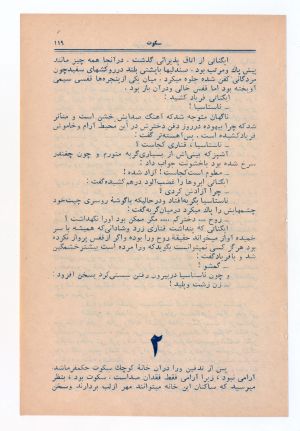 سکوت ۱۱۹
ایگناتی از اتاق پذیرائی گذشت . در آنجا همه چیز مانند
پیش پاک و مرتب بود . صندلیها با پشتی بلند در روکشهای سفید چون
مردگانی کفن شده جلوه میکرد . میان یکی از پنجره‌ها قفسی سیمی
آویخته بود اما قفس خالی و در آن باز بود .
ایگناتی فریاد کشید :
ــ ناستاسیا !
ناگهان متوجه شد که آهنگ صدایش خشن است و متأثر
شد که چرا بیهوده در روز دفن دخترش در این محیط آرام و خاموش
فریاد کشیده است . پس آهسته‌تر گفت :
ــ ناستاسیا ، قناری کجاست ؟
آشپز که بینی‌اش از بسیاری گریه متورم و چون چغندر
سرخ شده بود با خشونت جواب داد :
ــ معلوم است کجاست ! آزاد شده !
ایگناتی ابروها را غضب‌آلود درهم کشیده گفت :
ــ چرا آزادش کردی ؟
ناستاسیا بگریه افتاد و در حالیکه با گوشهٔ روسری چیت خود
چشمهایش را پاک میکرد در میان گریه گفت :
ــ روح ... دخترکم ... مگر ممکن بود او را نگهداشت ؟
ایگناتی که پنداشت قناری زرد و شادابی که همیشه با سر
خمیده آواز میخواند حقیقة روح ورا بوده و اگر از قفس پرواز نکرده
بود هرگز کسی نمیتوانست بگوید که ورا مرده است بیشتر خشمگین
شد و با فریاد گفت :
ــ گمشو !
و چون ناستاسیا در بیرون رفتن سستی کرد بسخن افزود :
ــ زن زشت و پلید !
۲
پس از تدفین ورا در آن خانهٔ کوچک سکوت حکمفرما شد
آرامی نبود ، زیرا آرامی فقط فقدان صداست . سکوت بود ، بنظر
میرسید که ساکنان این خانه میتوانند مهر از لب بردارند و سخن